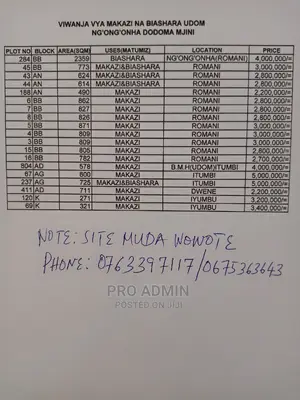 VIWANJA VYA MAKAZI NA BIASHARA UDOM
NG'ONG'ONHA DODOMA MJINI
PLOT NO BLOCK AREA(SQM) USES(MATUMIZI) LOCATION PRICE
284 BB 2359 BIASHARA NG'ONG'ONHA(ROMANI) 4,000,000/=
45 BB 773 MAKAZI&BIASHARA ROMANI 3,000,000/=
43 AN 624 MAKAZI&BIASHARA ROMANI 2,800,000/=
44 AN 614 MAKAZI&BIASHARA ROMANI 2,800,000/=
188 AN 490 MAKAZI ROMANI 2,200,000/=
6 BB 862 MAKAZI ROMANI 2,800,000/=
7 BB 827 MAKAZI ROMANI 2,800,000/=
8 BB 826 MAKAZI ROMANI 2,800,000/=
5 BB 871 MAKAZI ROMANI 3,000,000/=
4 BB 809 MAKAZI ROMANI 3,000,000/=
3 BB 809 MAKAZI ROMANI 3,000,000/=
15 BB 805 MAKAZI ROMANI 2,800,000/=
16 BB 782 MAKAZI ROMANI 2,700,000/=
804 AD 578 MAKAZI B.M.H(UDOM)ITUMBI 4,000,000/=
67 AG 600 MAKAZI ITUMBI 5,000,000/=
237 AG 725 MAKAZI&BIASHARA ITUMBI 5,000,000/=
411 AG 711 MAKAZI OWENE 2,200,000/=
120 K 271 MAKAZI IYUMBU 3,200,000/=
69 K 321 MAKAZI IYUMBU 3,400,000/=
NOTE: SITE MUDA WOWOTE
PHONE: 0763397117/0675363643
PRO ADMIN
POSTED ON JIJI